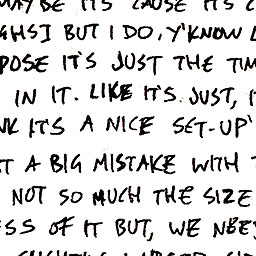 MAYBE IT'S 'CAUSE IT'S
BUT I DO, Y'KNOW
POSE IT'S JUST THE TIM
IN IT. LIKE IT'S JUST, I
NK IT'S A NICE SET-UP'
T A BIG MISTAKE WITH
NOT SO MUCH THE SIZE
ESS OF IT BUT, WE NEE